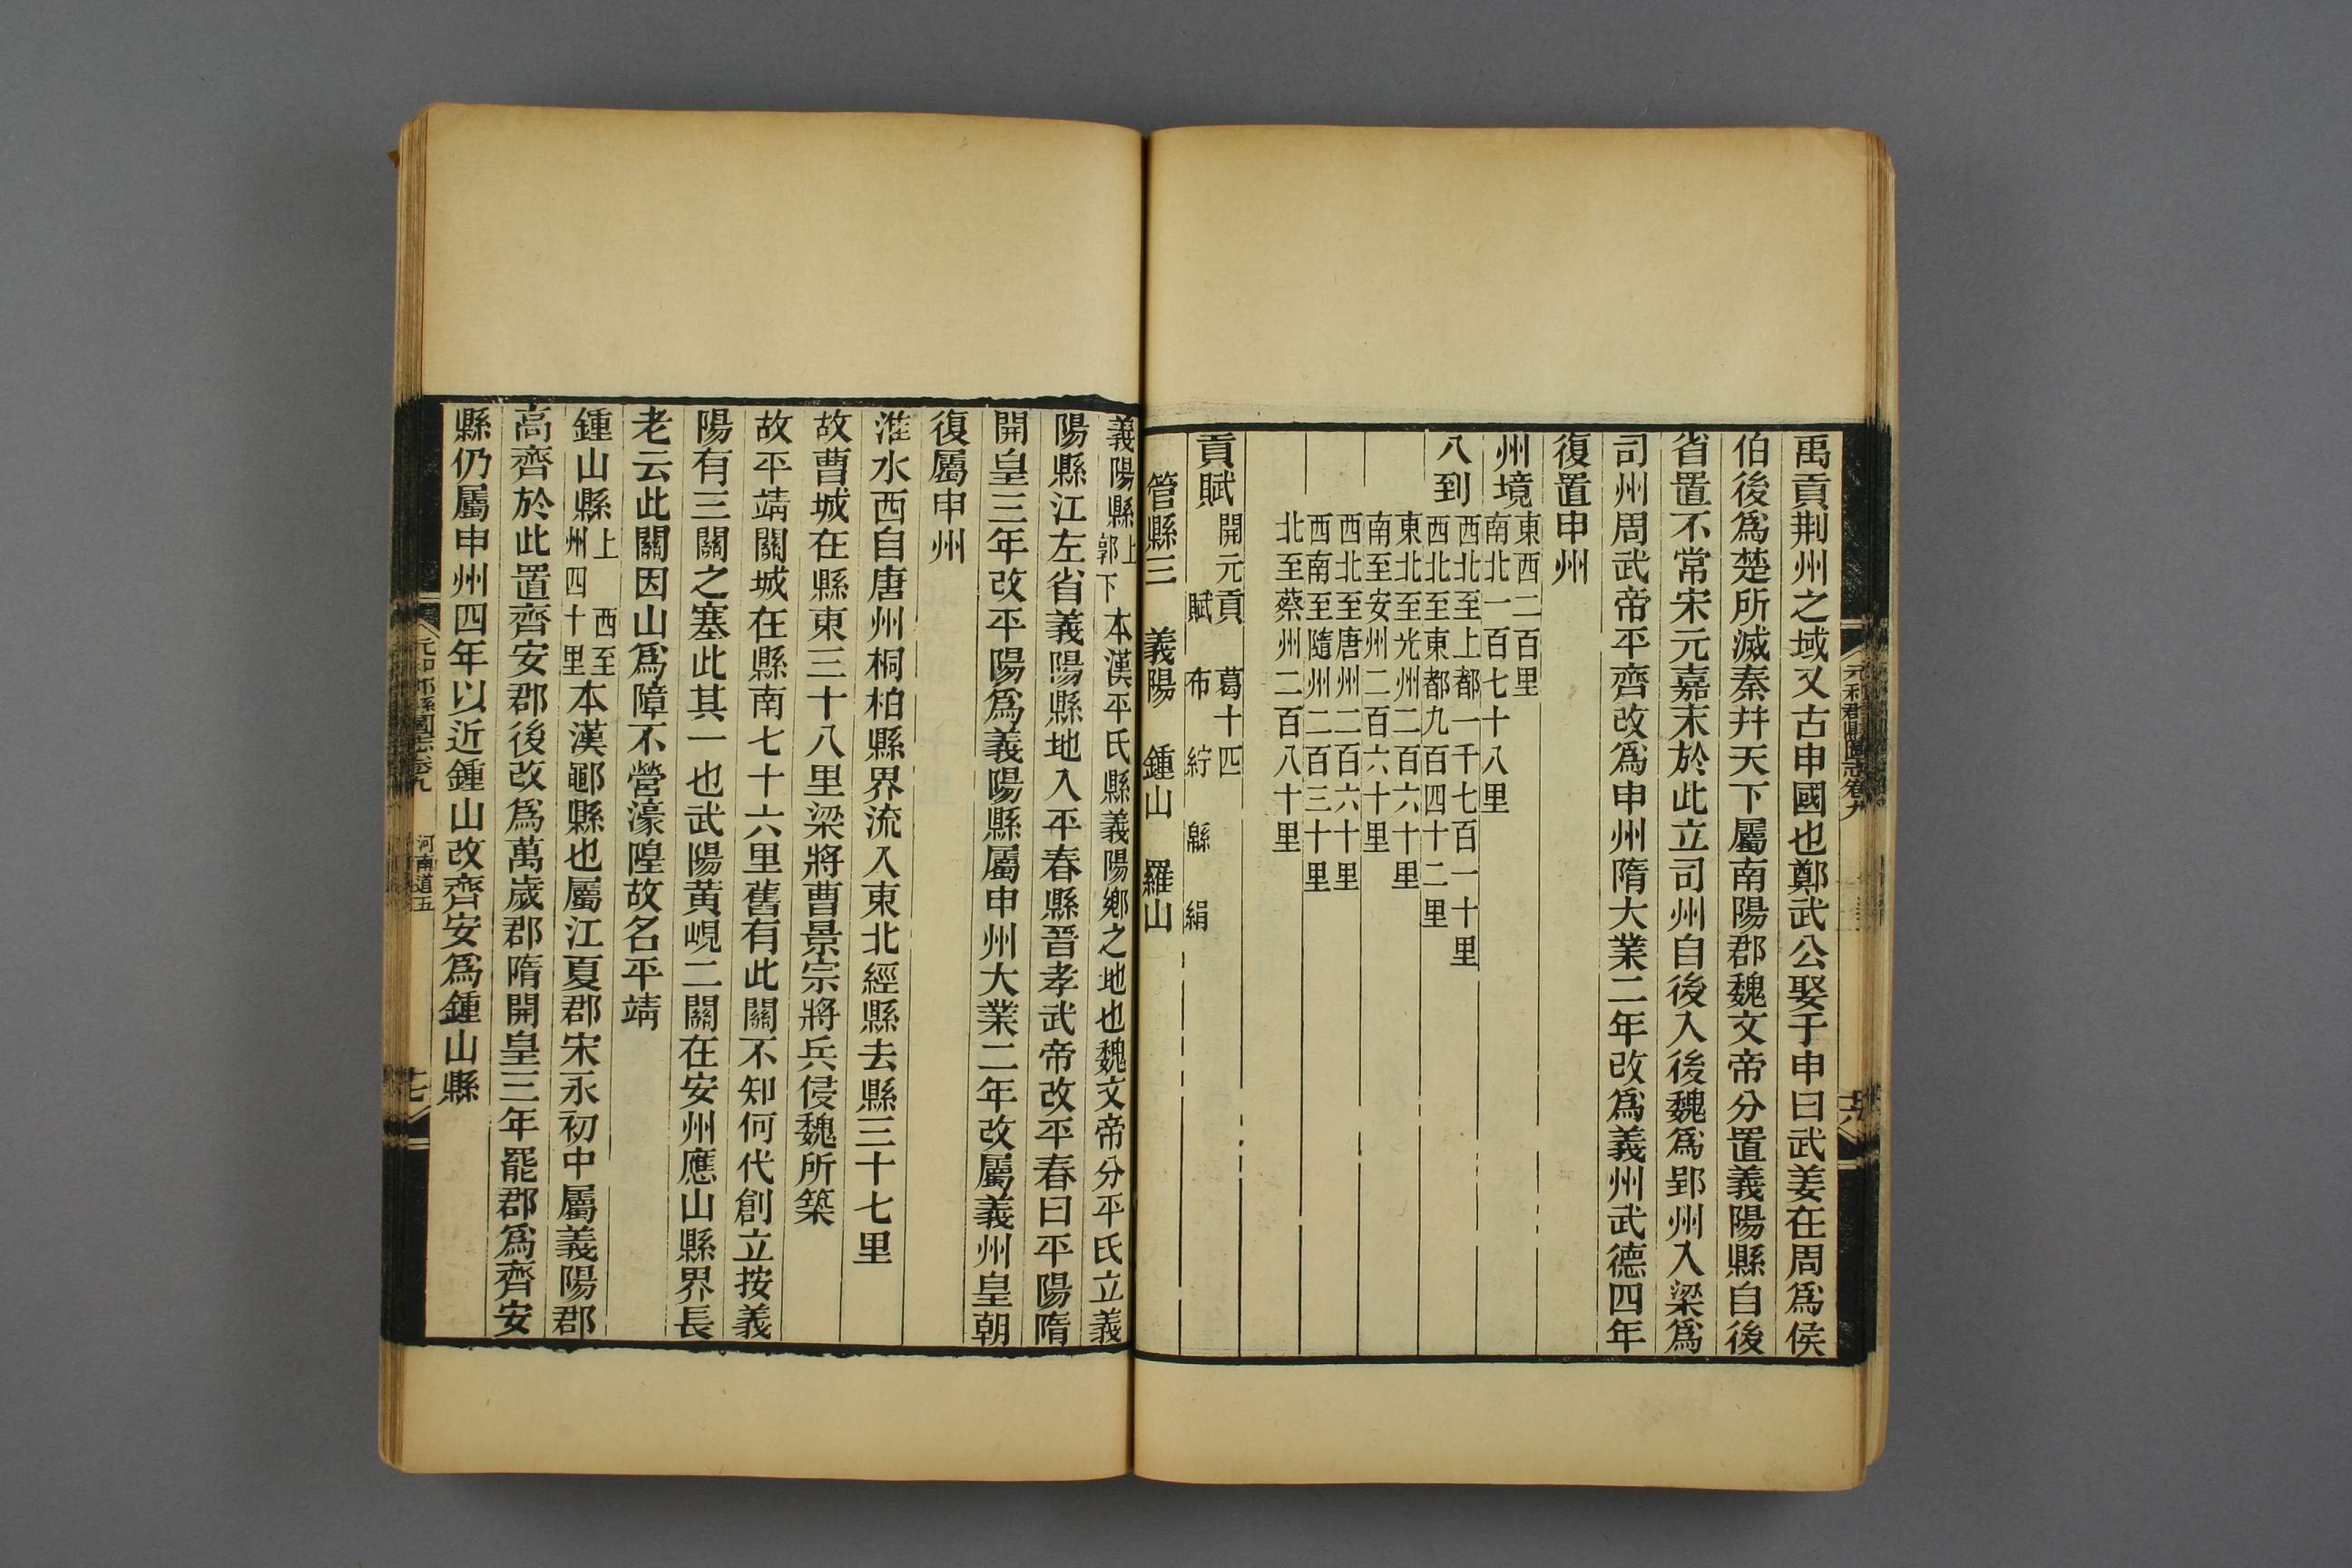 元和郡縣圖志卷九
禹貢荆州之域又古申國也鄭武公娶于申曰武姜在周爲侯
伯後爲楚所滅秦幷天下屬南陽郡魏文帝分置義陽縣自後
省置不常宋元嘉末於此立司州自後入後魏爲郢州入梁爲
司州周武帝平齊改爲申州隋大業二年改爲義州武德四年
復置申州
州境東西二百里
南北一百七十八里
八到西北至上都一千七百一十里
西北至東都九百四十二里
東北至光州二百六十里
南至安州二百六十里
西北至唐州二百六十里
西南至隨州二百三十里
北至蔡州二百八十里
貢賦開元貢 葛十匹
賦 布 紵 緜 絹
管縣三 義陽 鍾山 羅山
義陽縣上郭下本漢平氏縣義陽鄉之地也魏文帝分平氏立義
陽縣江左省義陽縣地入平春縣晉孝武帝改平春曰平陽隋
開皇三年改平陽爲義陽縣屬申州大業二年改屬義州皇朝
復屬申州
淮水西自唐州桐柏縣界流入東北經縣去縣三十七里
故曹城在縣東三十八里梁將曹景宗將兵侵魏所築
故平靖關城在縣南七十六里舊有此關不知何代創立按義
陽有三關之塞此其一也武陽黄峴二關在安州應山縣界長
老云此關因山爲障不營濠隍故名平靖
鍾山縣上 西至州四十里本漢鄳縣也屬江夏郡宋永初中屬義陽郡
高齊於此置齊安郡後改爲萬歲郡隋開皇三年罷郡爲齊安
縣仍屬申州四年以近鍾山改齊安爲鍾山縣
元和郡縣圖志卷九 河南道五